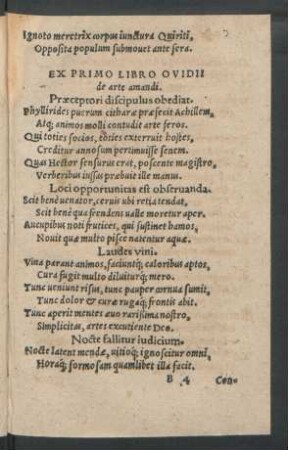 Ignoto meretrix corpus iunctura Quiriti,
Opposita populum submouet ante sera.
EX PRIMO LIBRO OVIDII
de arte amandi.
Præceptori discipulus obediat.
Phyllirides puerum citharæ præfecit Achillem,
Atq; animos molli contudit arte feros.
Qui toties socios, toties exterruit hostes,
Creditur annosum pertimuisse senem.
Quas Hector sensurus erat, poscente magistro,
Verberibus iussas præbuit ille manus.
Loci opportunitas est obseruanda.
Scit benè uenator, ceruis ubi retia tendat,
Scit benè qua frendens ualle moretur aper.
Aucupibus noti frutices, qui sustinet hamos,
Nouit quæ multo pisce natentur aquæ.
Laudes vini.
Vina parant animos, faciuntq; caloribus aptos,
Cura fugit multo diluiturq; mero.
Tunc ueniunt risus, tunc pauper cornua sumit,
Tunc dolor & curæ rugaq; frontis abit.
Tunc aperit mentes æuo rarissima nostro,
Simplicitas, artes excutiente Deo.
Nocte fallitur iudicium.
Nocte latent mendæ, uitioq; ignoscitur omni,
Horaq; formosam quamlibet illa facit.
B 4 Con-